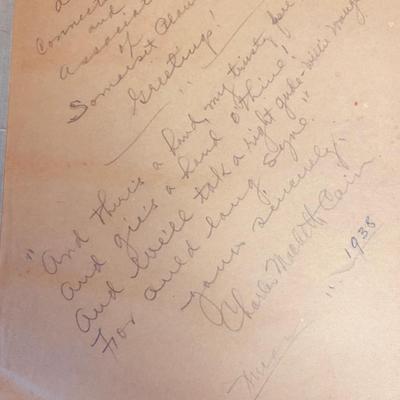 Connect
and
Associat
of
Somerset
Greetings!
"And there's a hand, my trusty
And gie's a hand o' thine!
And we'll tak a right gude-willie waug
For auld lang Syne."
Yours sincerely,
Charles
1938